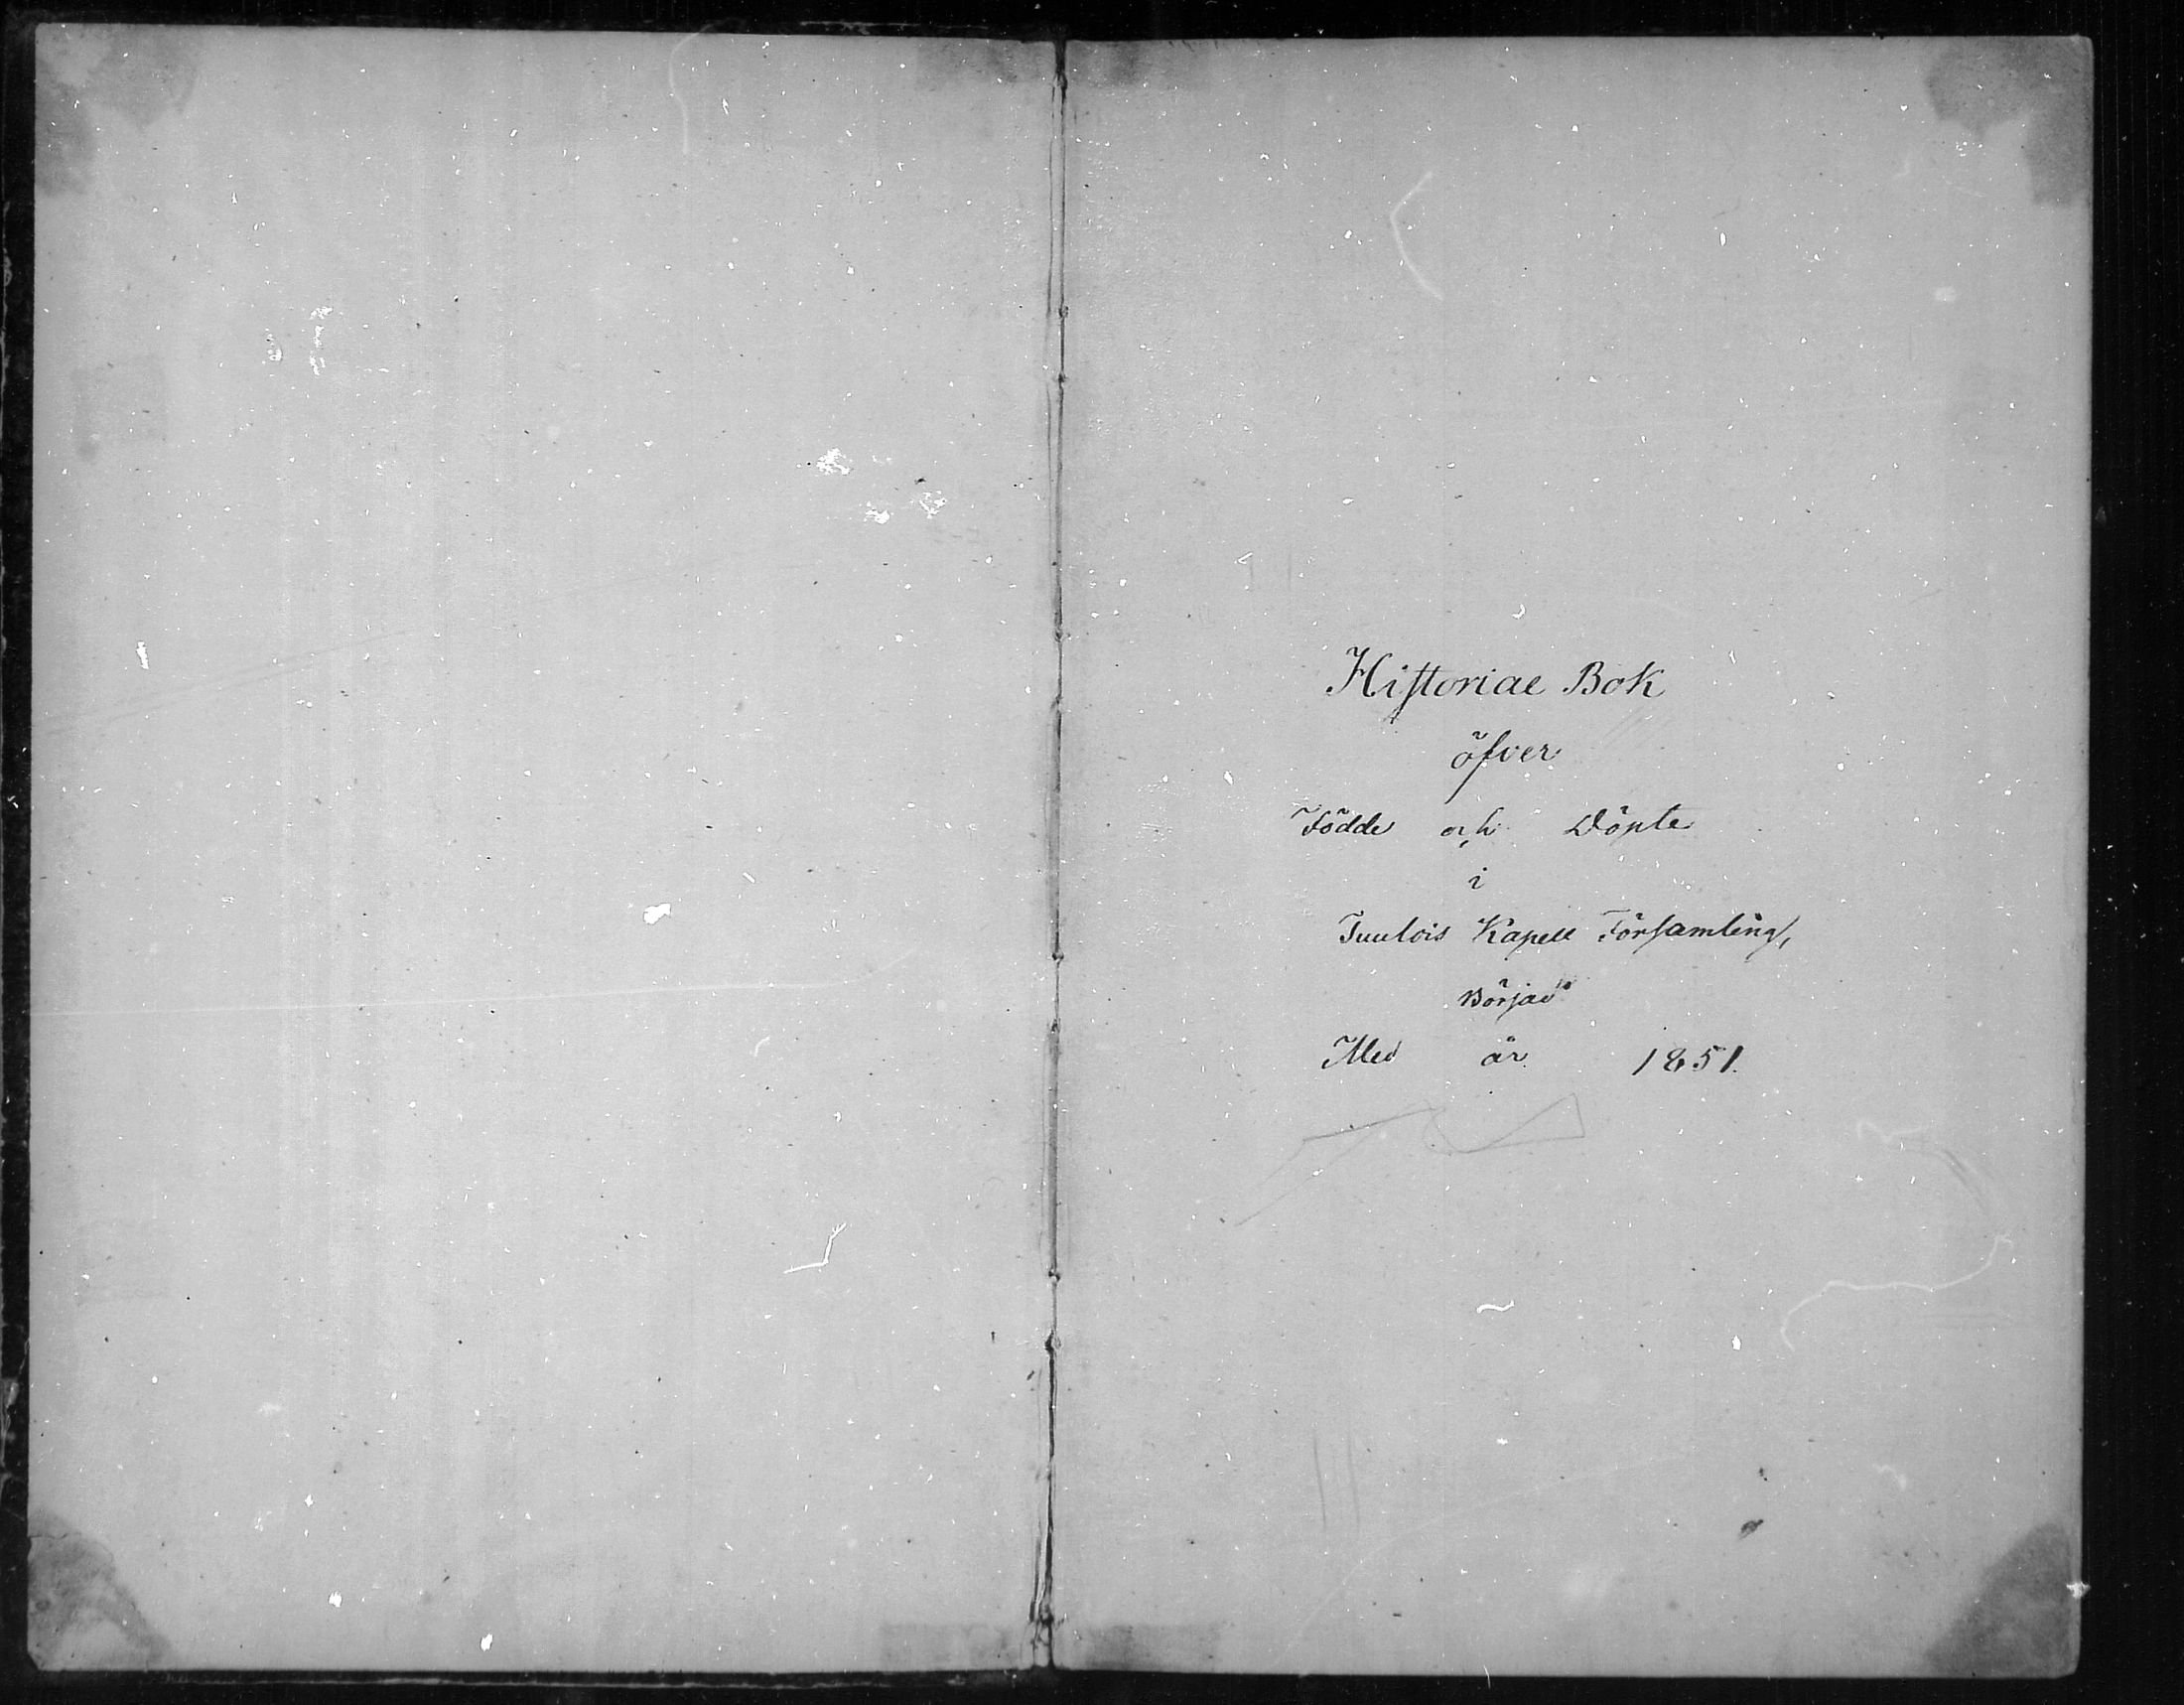 Historiae Bok
öfver
Födde och Döpte
i
Tuulois Kapell Församling,
Börjad
Med år 1851.